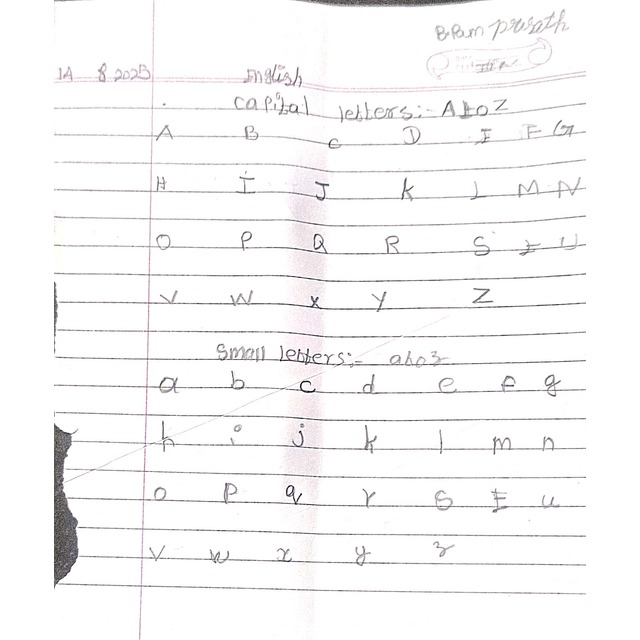 B.Ram prasath
14 8 2025
English
capital letters:- A to Z
A B C D E F G
H I J K L M N
O P Q R S t U
V W X Y Z
Small letters:- a to z
a b c d e f g
h i j k l m n
o p q r s t u
v w x y z